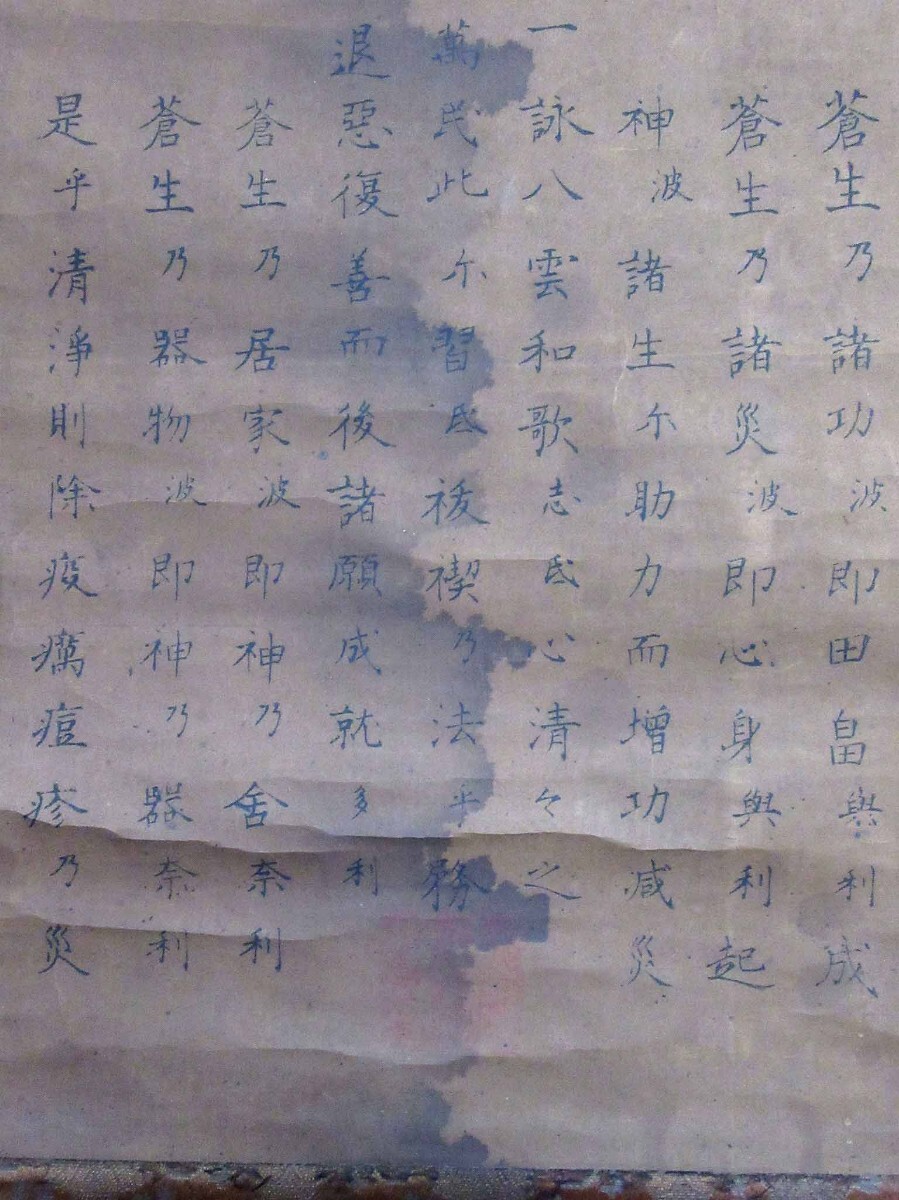 蒼生乃諸功波即田畠與利成
蒼生乃諸災波即心身與利起
神波諸生尓助力而增功减災
一詠八雲和歌志氐心清々之
萬民此尓習氐祓禊乃法乎務
退惡復善而後諸願成就多利
蒼生乃居家波即神乃舍奈利
蒼生乃器物波即神乃器奈利
是乎清淨則除疫癘痘疹乃災